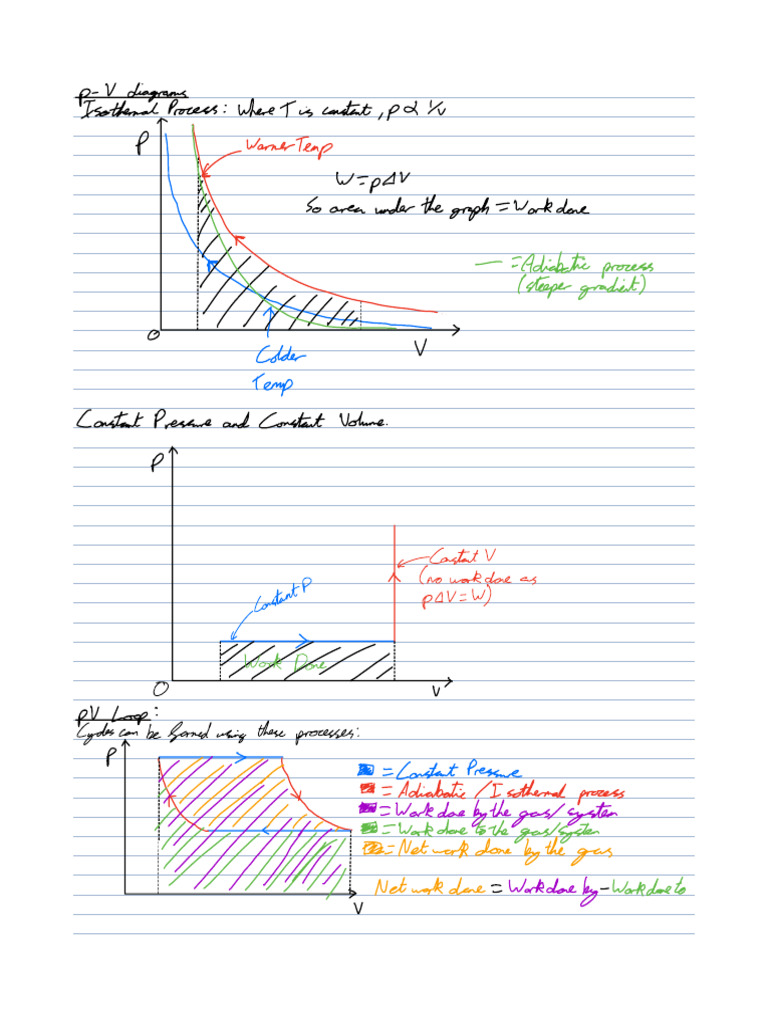 p-V diagrams
Isothermal Process: Where T is constant, p ∝ 1/V
P
Warmer Temp
W = pΔV
So area under the graph = Work done
— = Adiabatic process
(steeper gradient)
O
V
Colder
Temp
Constant Pressure and Constant Volume.
P
Constant V
(no work done as
pΔV = W)
Constant P
Work Done
O
V
pV Loop:
Cycles can be formed using these processes:
P
= Constant Pressure
= Adiabatic / Isothermal process
= Work done by the gas/system
= Work done to the gas/system
= Net work done by the gas
Net work done = Work done by - Work done to
V